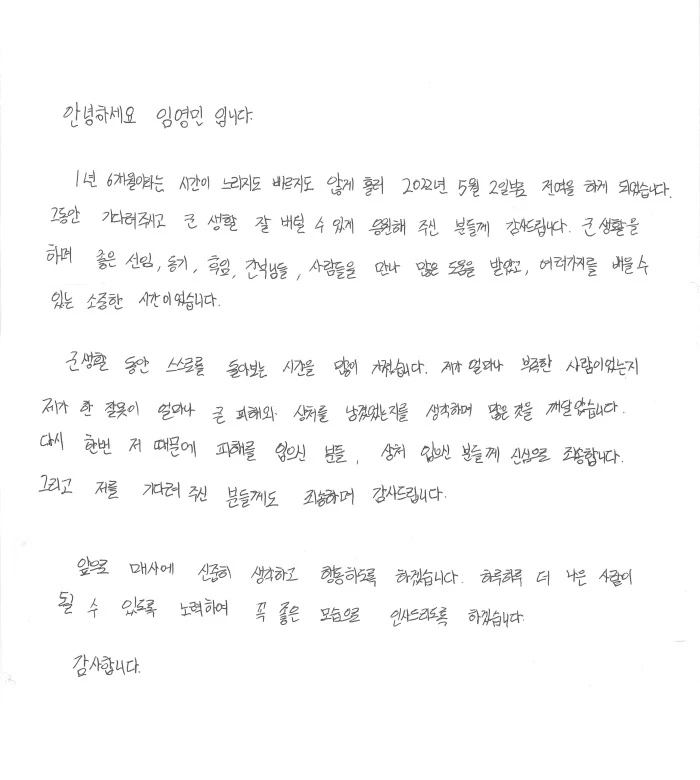 안녕하세요 임영민 입니다.
1년 6개월이라는 시간이 느리지도 빠르지도 않게 흘러 2022년 5월 2일부로 전역을 하게 되었습니다.
그동안 기다려주시고 군 생활 잘 버틸 수 있게 응원해 주신 분들께 감사드립니다. 군생활을
하며 좋은 선임, 동기, 후임, 간부님들, 사람들을 만나 많은 도움을 받았고, 여러가지를 배울수
있는 소중한 시간이었습니다.
군생활 동안 스스로를 돌아보는 시간을 많이 가졌습니다. 제가 얼마나 부족한 사람이었는지
제가 한 잘못이 얼마나 큰 피해와 상처를 남겼었는지를 생각하며 많은것을 깨달았습니다.
다시 한번 저 때문에 피해를 입으신 분들, 상처 입으신 분들께 진심으로 죄송합니다.
그리고 저를 기다려 주신 분들께도 죄송하며 감사드립니다.
앞으로 매사에 신중히 생각하고 행동하도록 하겠습니다. 하루하루 더 나은 사람이
될 수 있도록 노력하여 꼭 좋은 모습으로 인사드리도록 하겠습니다.
감사합니다.